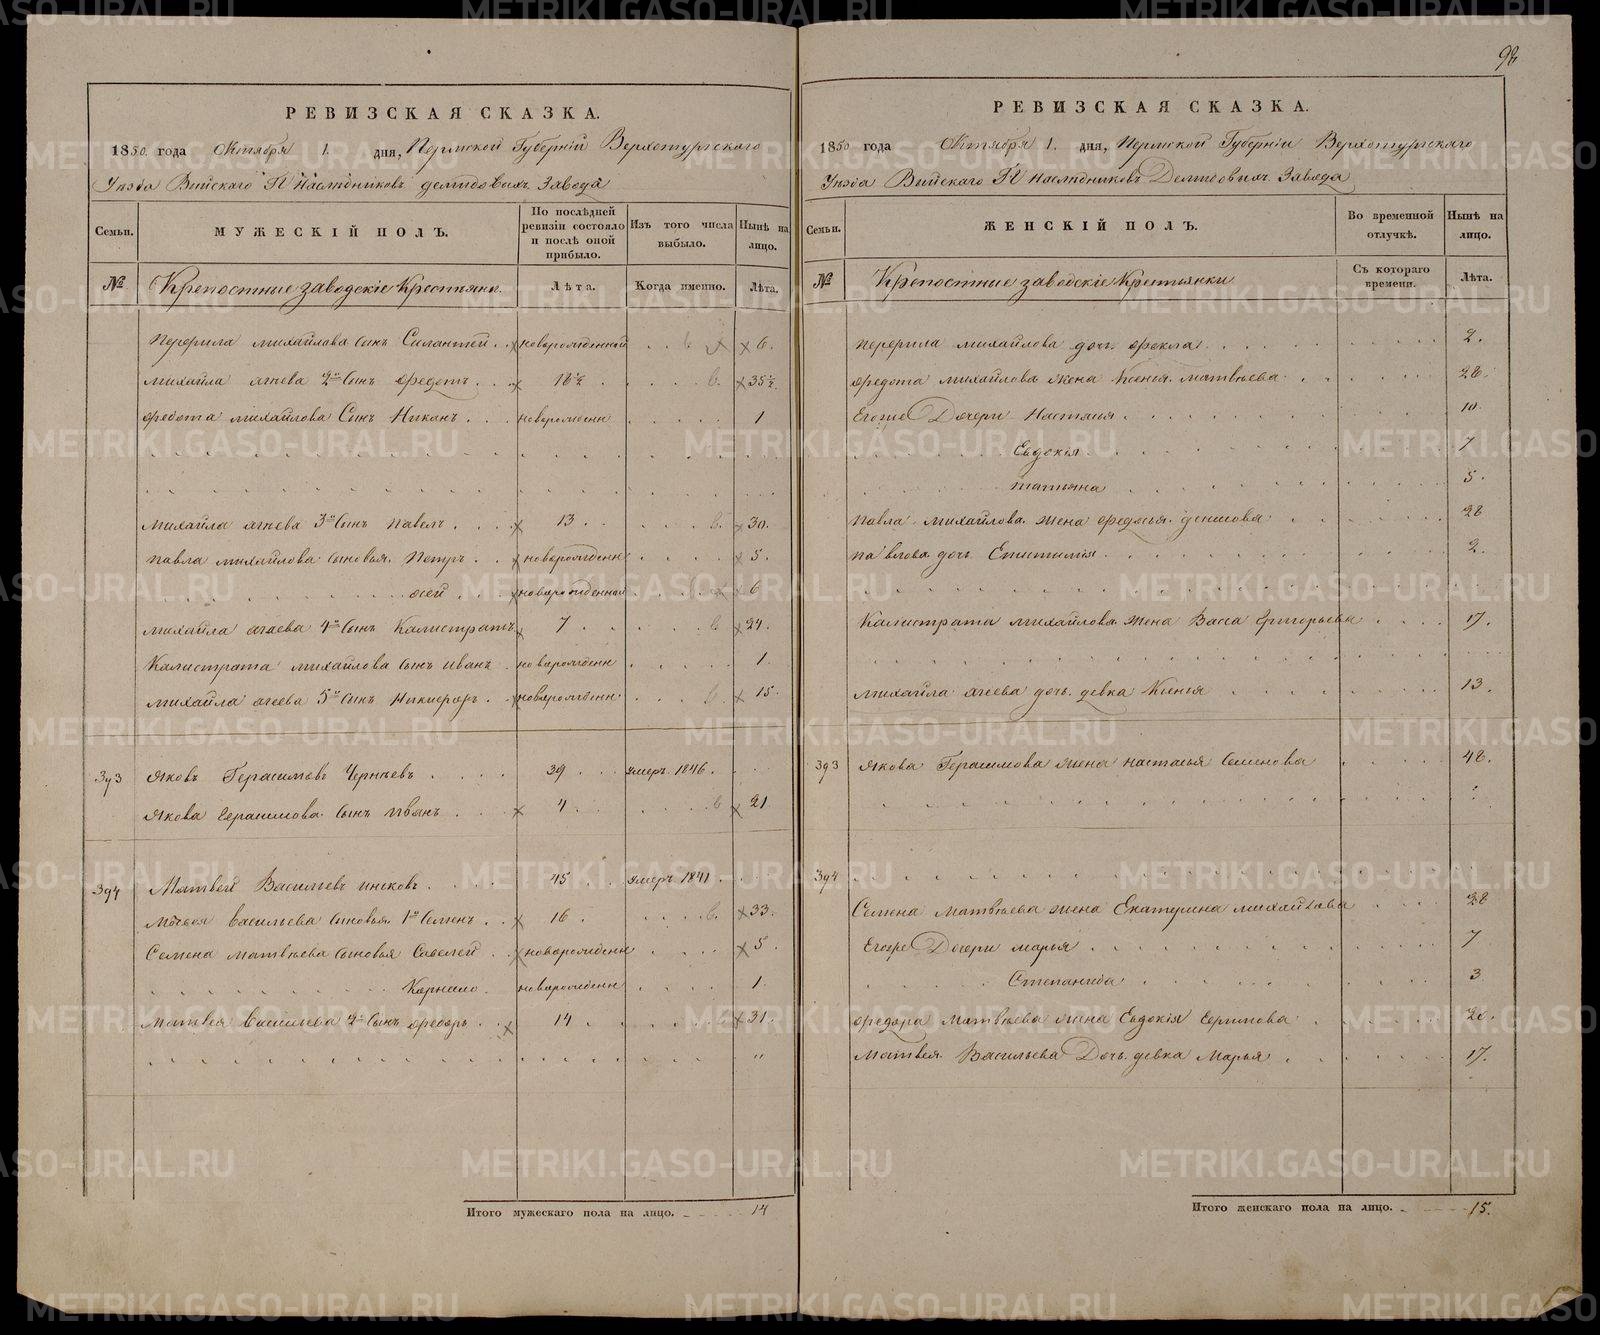 98
РЕВИЗСКАЯ СКАЗКА.
1850. года Октября 1. дня, Пермской Губерніи Верхотурскаго
Уѣзда Выйскаго Гг Наслѣдниковъ Демидовыхъ Завода
Семьи.
МУЖЕСКІЙ ПОЛЪ.
По послѣдней ревизіи состояло и послѣ оной прибыло.
Изъ того числа выбыло.
Нынѣ на лицо.
№
Крепостные заводскіе Крестьяне.
Лѣта.
Когда именно.
Лѣта.
михайлова сынъ Силантей новорожденный 6.
михайла агеева 2й Сынъ Федотъ 18½ 35½
Федота михайлова Сынъ новорожденн 1
михайла агеева 3й Сынъ павелъ 13 30.
павла михайлова сыновья Петръ новорожденн 5.
новорожденной 6
михайла агаева 4й Сынъ Калистратъ 7 24.
Калистрата михайлова сынъ иванъ новорожденн 1.
михайла агеева 5й Сынъ Никифоръ новорожденн 15.
393 Яковъ Герасимовъ 39 умеръ 1846.
Якова Герасимова Сынъ Иванъ 4 21
394 Матвей Васильевъ 45 умеръ 1841.
Матвея васильева сыновья 1й Семенъ 16 33.
Семена матвѣева сыновья Савелей новорожденн 5
Корнило. новорожденн 1.
Матвея Васильева Сынъ Федоръ 14 31.
Итого мужескаго пола на лицо. 14
РЕВИЗСКАЯ СКАЗКА.
1850 года Октября 1. дня, Пермской Губерніи Верхотурскаго
Уѣзда Выйскаго Гг Наслѣдниковъ Демидовыхъ Завода
Семьи.
ЖЕНСКІЙ ПОЛЪ.
Во временной отлучкѣ.
Нынѣ на лицо.
№
Крепостные заводскіе Крестьянки
Съ котораго времени.
Лѣта.
михайлова дочь Фекла 2.
Федота михайлова жена Ксенія матвѣева 28.
Егоже Дочери Настасья 10.
Евдокія 7
татьяна 5.
Павла михайлова жена 28
павлова дочь Епистимія 2.
Калистрата михайлова жена Васса григорьева 17.
михайла агеева дочь девка Ксенья 13.
393 Якова Герасимова жена настасья Семенова 48.
394
Семена Матвѣева жена Екатерина михайлова 28
Егоже Дочери марья 7
Степанида 3
Федора Матвѣева жена Евдокія 20.
Матвея Васильева Дочь девка Марья 17.
Итого женскаго пола на лицо. 15.
METRIKI.GASO-URAL.RU